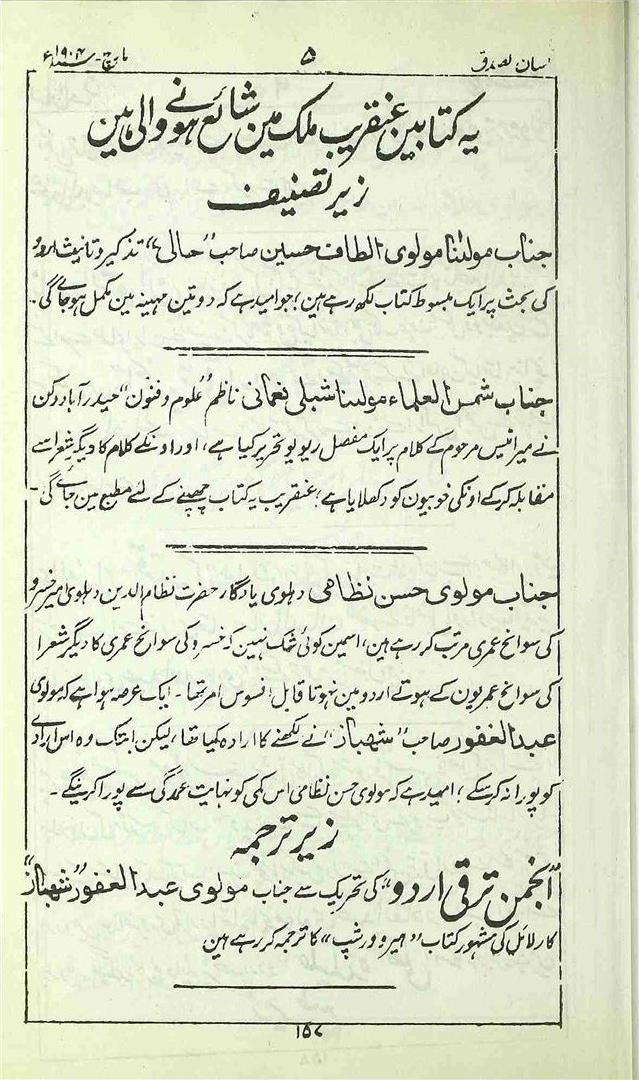 لسان الصدق
۵
مارچ سنہ ۱۹۰۴ء
یہ کتابین عنقریب ملک مین شائع ہونے والی ہین
زیر تصنیف
جناب مولٰنا مولوی الطاف حسین صاحب "حالی" تذکیر و تانیث اردو
کی بحث پر ایک مبسوط کتاب لکھ رہے ہین؛ جو امید ہے کہ دو تین مہینہ مین مکمل ہو جاے گی۔
جناب شمس العلماء مولٰنا شبلی نعمانی ناظم "علوم و فنون" حیدرآباد دکن
نے میر انیس مرحوم کے کلام پر ایک مفصل ریویو تحریر کیا ہے، اور اونکے کلام کا دیگر شعرا سے
مقابلہ کر کے اونکی خوبیون کو دکھلایا ہے؛ عنقریب یہ کتاب چھپنے کے لئے مطبع مین جاے گی۔
جناب مولوی حسن نظامی دہلوی یادگار حضرت نظام الدین دہلوی امیر خسرو
کی سوانح عمری مرتب کر رہے ہین، اسمین کوئی شک نہین کہ خسرو کی سوانح عمری کا دیگر شعرا
کی سوانح عمریون کے ہوتے اردو مین نہوتا قابل افسوس امر تھا۔ ایک عرصہ ہوا ہے کہ مولوی
عبدالغفور صاحب "شھباز" نے لکھنے کا ارادہ کیا تھا، لیکن ابتک وہ اس ارادے
کو پورا نہ کر سکے؛ امید ہے کہ مولوی حسن نظامی اس کمی کو نہایت عمدگی سے پورا کرینگے۔
زیر ترجمہ
"انجمن ترقی اردو" کی تحریک سے جناب مولوی عبدالغفور "شھباز"
کارلائل کی مشہور کتاب "ہیرو ورشپ" کا ترجمہ کر رہے ہین
۱۵۷